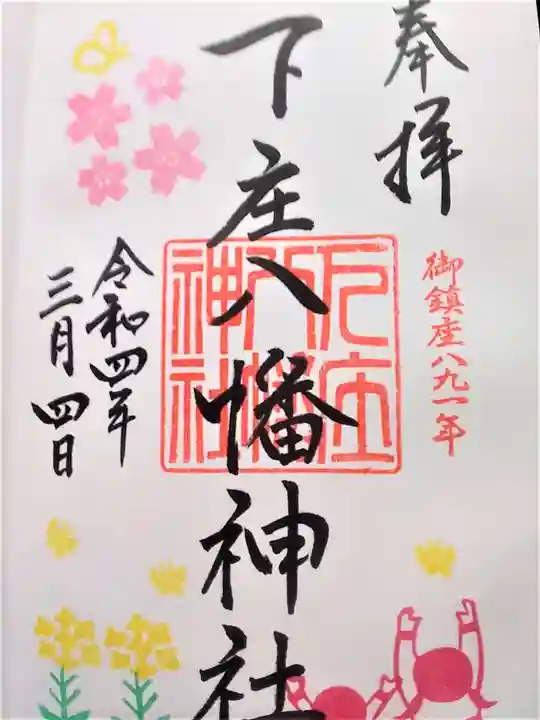 奉拝
御鎮座八九一年
下庄八幡神社
下庄
八幡
神社
令和四年
三月四日